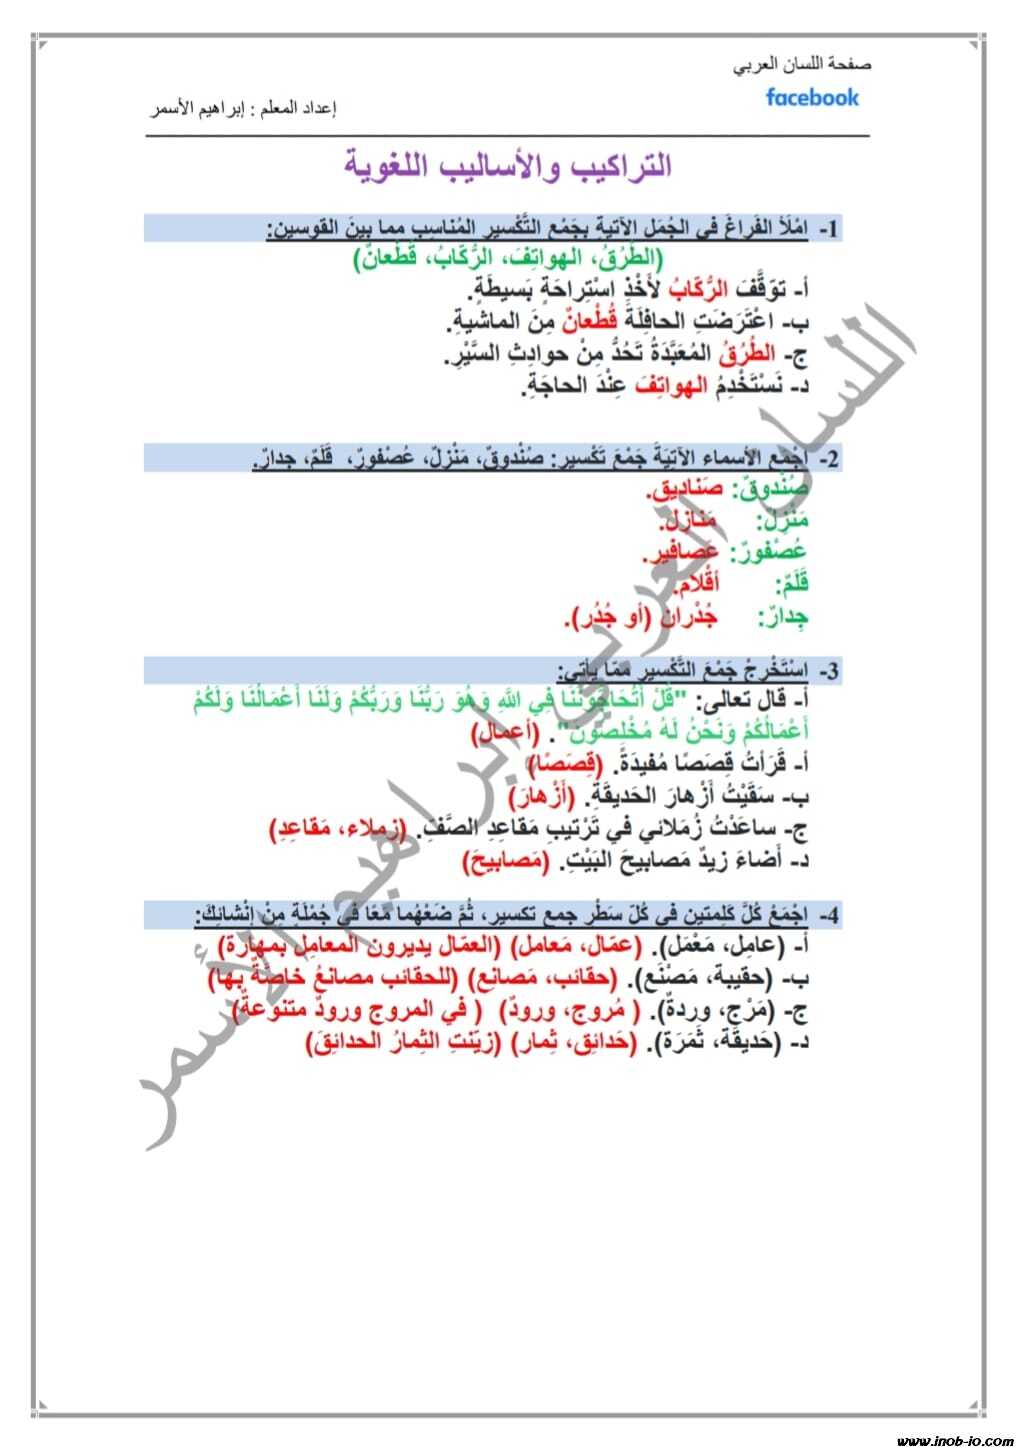 صفحة اللسان العربي
facebook
إعداد المعلم : إبراهيم الأسمر
التراكيب والأساليب اللغوية
1- امْلَأْ الفَراغَ في الجُمَلِ الآتيةِ بجَمْعِ التَّكْسيرِ المُناسِبِ مما بينَ القوسينِ:
(الطُرُقُ، الهواتِفَ، الرُّكّابُ، قُطْعانٌ)
أ- توَقَّفَ الرُّكّابُ لأَخْذِ اسْتِراحَةٍ بَسيطَةٍ.
ب- اعْتَرَضَتِ الحافِلَةَ قُطْعانٌ مِنَ الماشيةِ.
ج- الطُرُقُ المُعَبَّدَةُ تَحُدُّ مِنْ حوادِثِ السَّيْرِ.
د- نَسْتَخْدِمُ الهواتِفَ عِنْدَ الحاجَةِ.
2- اجْمَعِ الأسماءَ الآتِيَةَ جَمْعَ تَكْسيرٍ: صُنْدوقٌ، مَنْزِلٌ، عُصْفورٌ، قَلَمٌ، جِدارٌ.
صُنْدوقٌ: صَناديق.
مَنْزِلٌ: مَنازل.
عُصْفورٌ: عَصافير.
قَلَمٌ: أقْلام.
جِدارٌ: جُدْران (أو جُدُر).
3- اسْتَخْرِجْ جَمْعَ التَّكْسيرِ ممّا يأتي:
أ- قال تعالى: "قُلْ أَتُحَاجُّونَنَا فِي اللَّهِ وَهُوَ رَبُّنَا وَرَبُّكُمْ وَلَنَا أَعْمَالُنَا وَلَكُمْ
أَعْمَالُكُمْ وَنَحْنُ لَهُ مُخْلِصُونَ". (أعمال)
أ- قَرَأتُ قِصَصًا مُفيدَةً. (قِصَصًا)
ب- سَقَيْتُ أَزْهارَ الحَديقَةِ. (أَزْهارَ)
ج- ساعَدْتُ زُمَلائي في تَرْتيبِ مَقاعِدِ الصَّفِّ. (زملاء، مَقاعِدِ)
د- أَضاءَ زيدٌ مَصابيحَ البَيْتِ. (مَصابيحَ)
4- اجْمَعْ كُلَّ كَلِمتينِ في كُلِّ سَطْرٍ جمع تكسير، ثُمَّ ضَعْهُما مَعًا في جُمْلَةٍ مِنْ إنْشائِكَ:
أ- (عامِل، مَعْمَل). (عمّال، مَعامل) (العمّال يديرون المعامِل بمهارة)
ب- (حقيبة، مَصْنَع). (حقائب، مَصانِع) (للحقائب مصانعُ خاصّةٌ بها)
ج- (مَرْج، وردةٌ). ( مُروج، ورودٌ) ( في المروج ورودٌ متنوعةٌ)
د- (حَديقَة، ثَمَرَة). (حَدائِق، ثِمار) (زيّنتِ الثِمارُ الحدائِقَ)
اللسان العربي إبراهيم الأسمر
www.jnob-jo.com